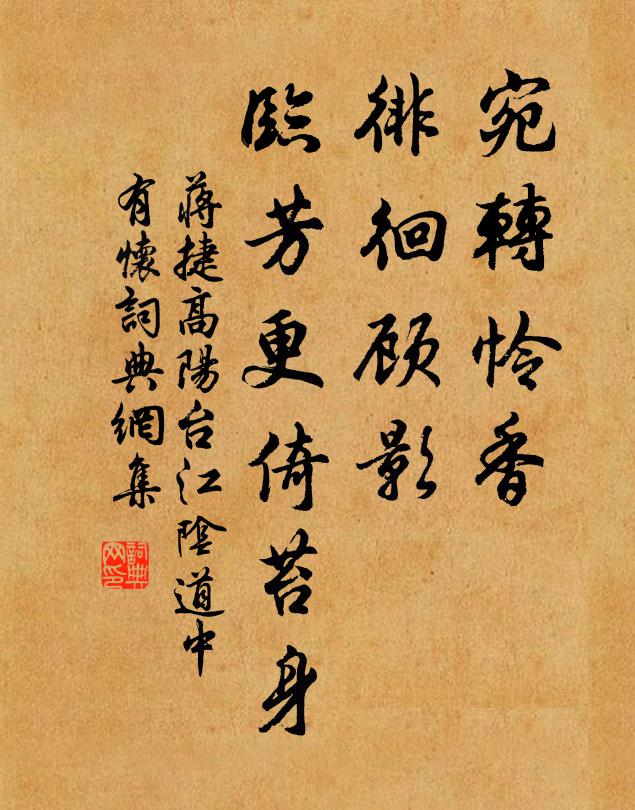 宛轉怜香
徘徊顾影
臨芳更倚苔身
蔣捷高陽台江陰道中
有懷詞典網集
詞典
网印